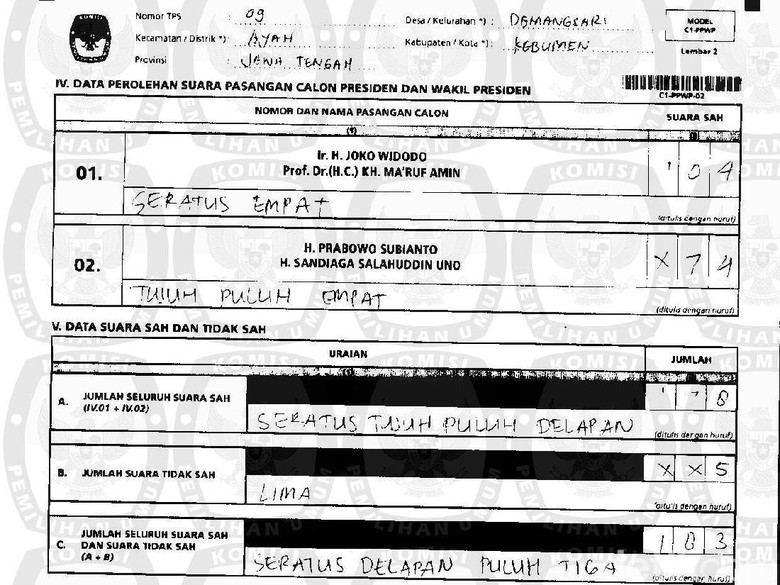 Nomor TPS : 09
Desa / Kelurahan *) : DEMANGSARI
MODEL
C1-PPWP
Kecamatan / Distrik *) : AYAH
Kabupaten / Kota *) : KEBUMEN
Provinsi : JAWA TENGAH
Lembar 2
IV. DATA PEROLEHAN SUARA PASANGAN CALON PRESIDEN DAN WAKIL PRESIDEN
C1-PPWP-02
NOMOR DAN NAMA PASANGAN CALON
SUARA SAH
(1)
01.
Ir. H. JOKO WIDODO
Prof. Dr.(H.C.) KH. MA'RUF AMIN
1 0 4
SERATUS EMPAT
(ditulis dengan huruf)
02.
H. PRABOWO SUBIANTO
H. SANDIAGA SALAHUDDIN UNO
X 7 4
TUJUH PULUH EMPAT
(ditulis dengan huruf)
V. DATA SUARA SAH DAN TIDAK SAH
URAIAN
JUMLAH
A. JUMLAH SELURUH SUARA SAH
(IV.01 + IV.02)
1 7 8
SERATUS TUJUH PULUH DELAPAN
(ditulis dengan huruf)
B. JUMLAH SUARA TIDAK SAH
X X 5
LIMA
(ditulis dengan huruf)
C. JUMLAH SELURUH SUARA SAH
DAN SUARA TIDAK SAH
(A + B)
1 8 3
SERATUS DELAPAN PULUH TIGA
(ditulis dengan huruf)